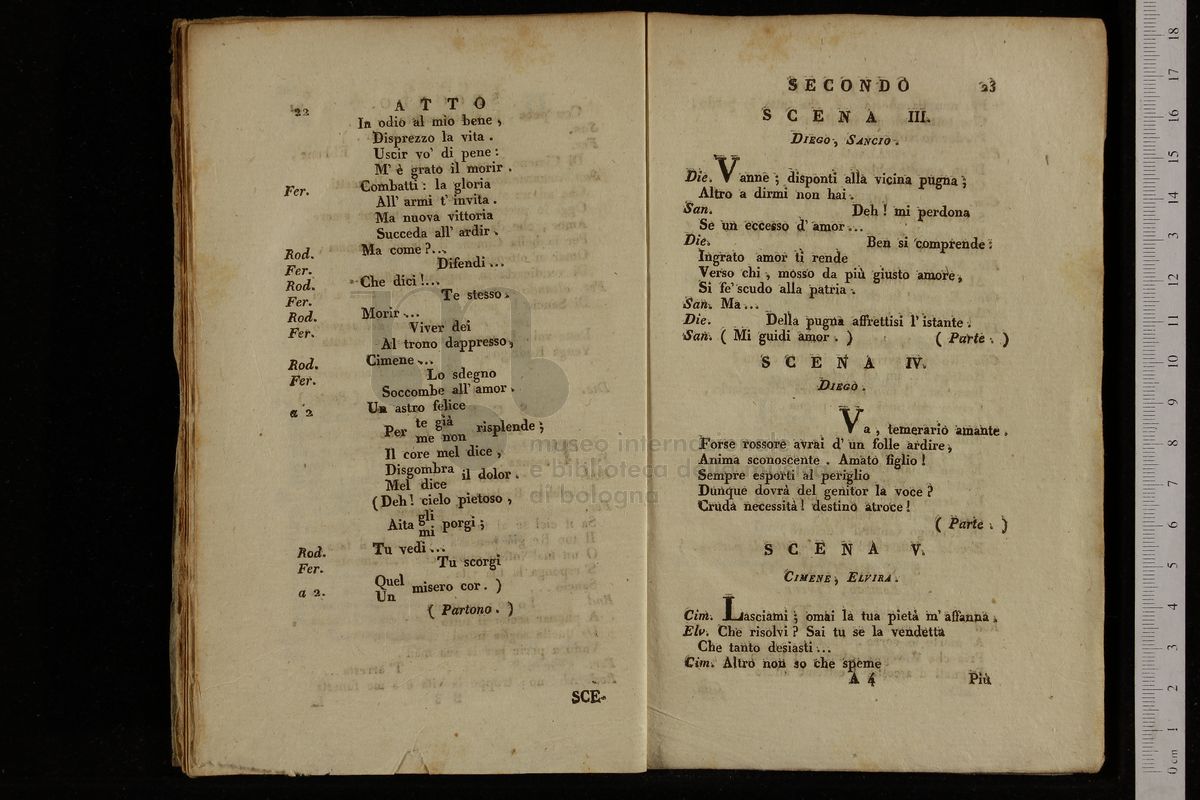 22
ATTO
In odio al mio bene,
Disprezzo la vita.
Uscir vo' di pene:
M' è grato il morir.
Fer. Combatti: la gloria
All' armi t' invita.
Ma nuova vittoria
Succeda all' ardir.
Rod. Ma come?...
Fer. Difendi...
Rod. Che dici!...
Fer. Te stesso.
Rod. Morir...
Fer. Viver dei
Al trono dappresso,
Rod. Cimene...
Fer. Lo sdegno
Soccombe all' amor.
a 2 Un astro felice
Per te già risplende;
me non
Il core mel dice,
Disgombra il dolor.
Mel dice
(Deh! cielo pietoso,
Aita gli porgi;
mi
Rod. Tu vedi...
Fer. Tu scorgi
a 2. Quel misero cor. )
Un
( Partono. )
SCE-
SECONDO 23
SCENA III.
DIEGO, SANCIO.
Die. Vanne; disponti alla vicina pugna;
Altro a dirmi non hai.
San. Deh! mi perdona
Se un eccesso d' amor...
Die. Ben si comprende:
Ingrato amor ti rende
Verso chi, mosso da più giusto amore,
Si fe' scudo alla patria.
San. Ma...
Die. Della pugna affrettisi l' istante.
San. ( Mi guidi amor. ) ( Parte. )
SCENA IV.
DIEGO.
Va, temerario amante.
Forse rossore avrai d' un folle ardire,
Anima sconoscente. Amato figlio!
Sempre esporti al periglio
Dunque dovrà del genitor la voce?
Cruda necessità! destino atroce!
( Parte. )
SCENA V.
CIMENE, ELVIRA.
Cim. Lasciami; omai la tua pietà m' affanna.
Elv. Che risolvi? Sai tu se la vendetta
Che tanto desiasti...
Cim. Altro non so che speme
A 4 Più
museo interna
e biblioteca d
di bologna
0 cm 1 2 3 4 5 6 7 8 9 10 11 12 13 14 15 16 17 18